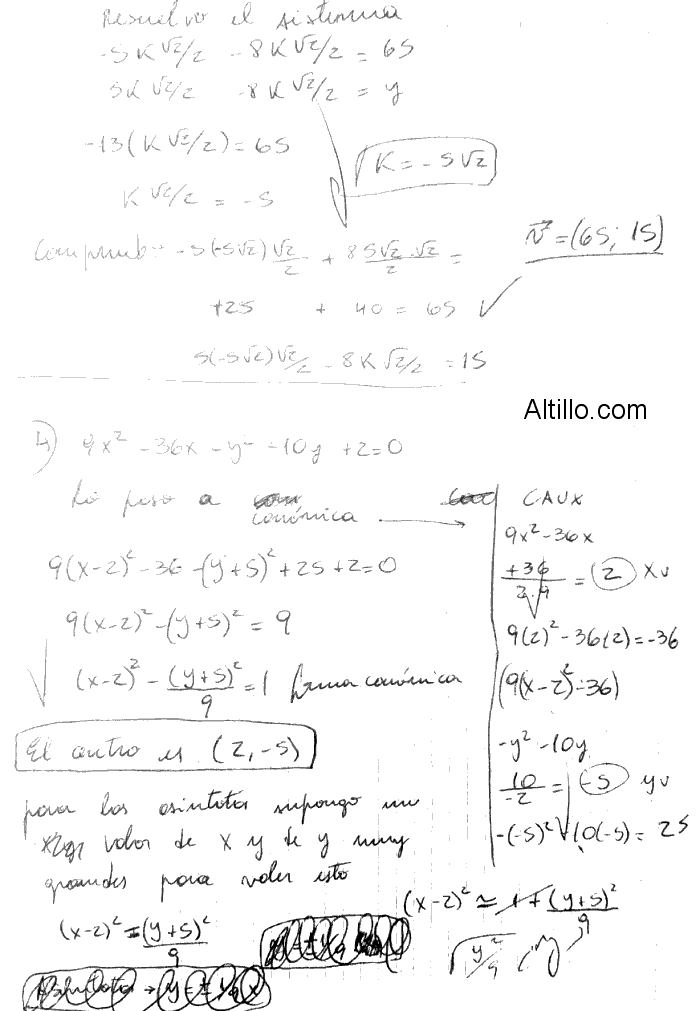 Resuelvo el sistema
-5K√2/2 -8K√2/2 = 65
5K√2/2 -8K√2/2 = y
-13(K√2/2) = 65
K = -5√2
K√2/2 = -5
Compruebo -5(-5√2)√2/2 + 8 5√2/2 . √2 =
+25 + 40 = 65 ✓
N⃗ = (65; 15)
5(-5√2)√2/2 - 8K√2/2 = 15
Altillo.com
4) 9x² - 36x - y² - 10y + 2 = 0
Lo paso a canónica
9(x-2)² - 36 - (y+5)² + 25 + 2 = 0
9(x-2)² - (y+5)² = 9
(x-2)² - (y+5)²/9 = 1 forma canónica
El centro es (2, -5)
para las asintotas supongo un
valor de x y de y muy
grandes para valer esto
(x-2)² = (y+5)²/9
CAUX
9x² - 36x
+36/2.9 = 2 xv
9(2)² - 36(2) = -36
(9(x-2)² - 36)
-y² - 10y
10/-2 = -5 yv
-(-5)² - 10(-5) = 25
(x-2)² ≃ 1 + (y+5)²/9
√y²/9